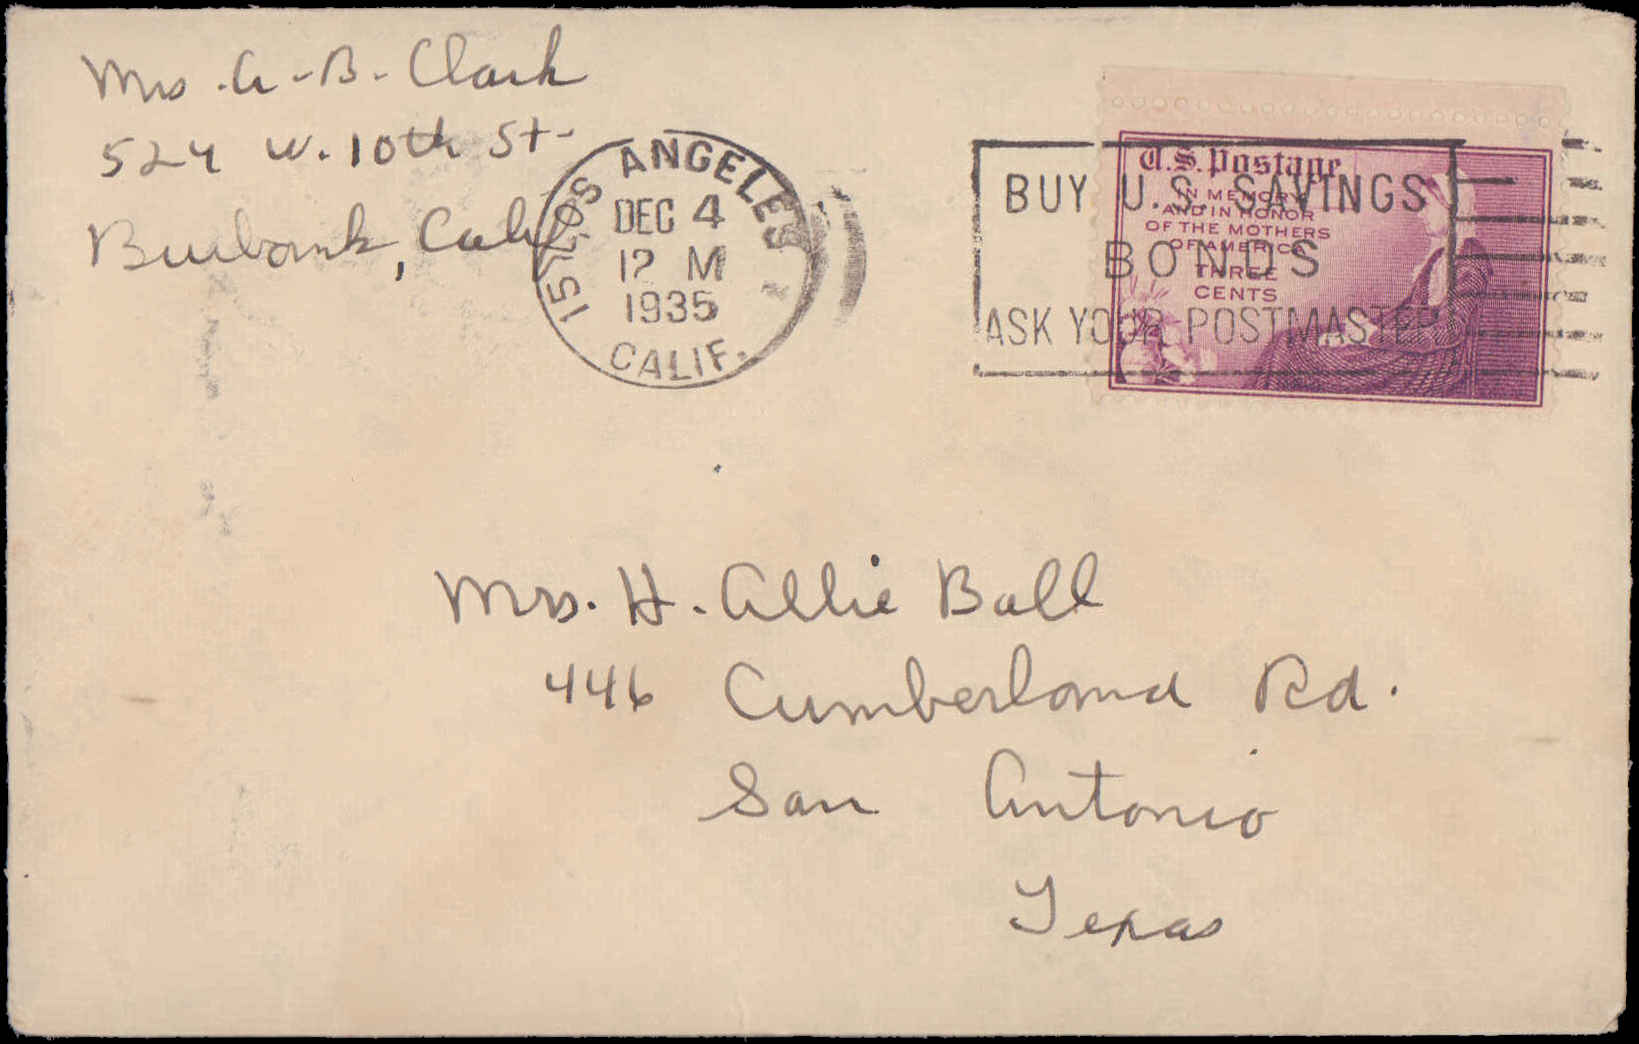 Mrs. A-B-Clark
524 W. 10th St-
Burbank, Calif
LOS ANGELES
15
DEC 4
12 M
1935
CALIF.
BUY U.S. SAVINGS
BONDS
ASK YOUR POSTMASTER
U.S. Postage
IN MEMORY
AND IN HONOR
OF THE MOTHERS
OF AMERICA
THREE
CENTS
Mrs. H. Allie Ball
446 Cumberland Rd.
San Antonio
Texas